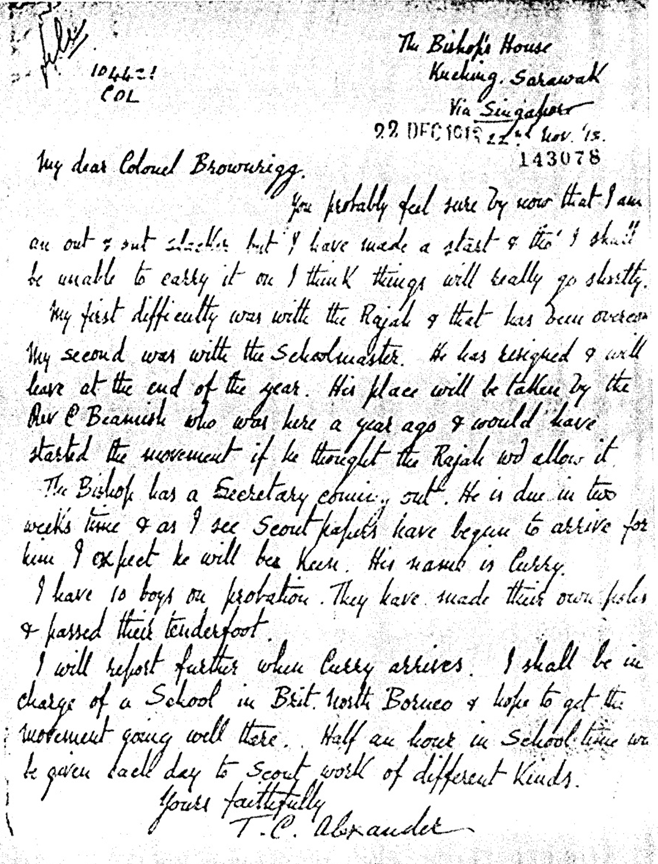 File
104421
COL
The Bishop's House
Kuching. Sarawak
Via Singapore
22 DEC 191 22nd Nov. '13.
143078
My dear Colonel Brownrigg.
You probably feel sure by now that I am
an out & out slacker but I have made a start & tho' I shall
be unable to carry it on I think things will really go shortly.
My first difficulty was with the Rajah & that has been overcom
My second was with the Schoolmaster. He has resigned & will
leave at the end of the year. His place will be taken by the
Rev C Beamish who was here a year ago & would have
started the movement if he thought the Rajah wd allow it.
The Bishop has a Secretary coming out. He is due in two
week's time & as I see Scout papers have begun to arrive for
him I expect he will be keen. His name is Curry.
I have 10 boys on probation. They have made their own
& passed their tenderfoot.
I will report further when Curry arrives. I shall be in
charge of a School in Brit. North Borneo & hope to get the
movement going well there. Half an hour in School time
be given each day to Scout work of different kinds.
Yours faithfully
T. C. Alexander